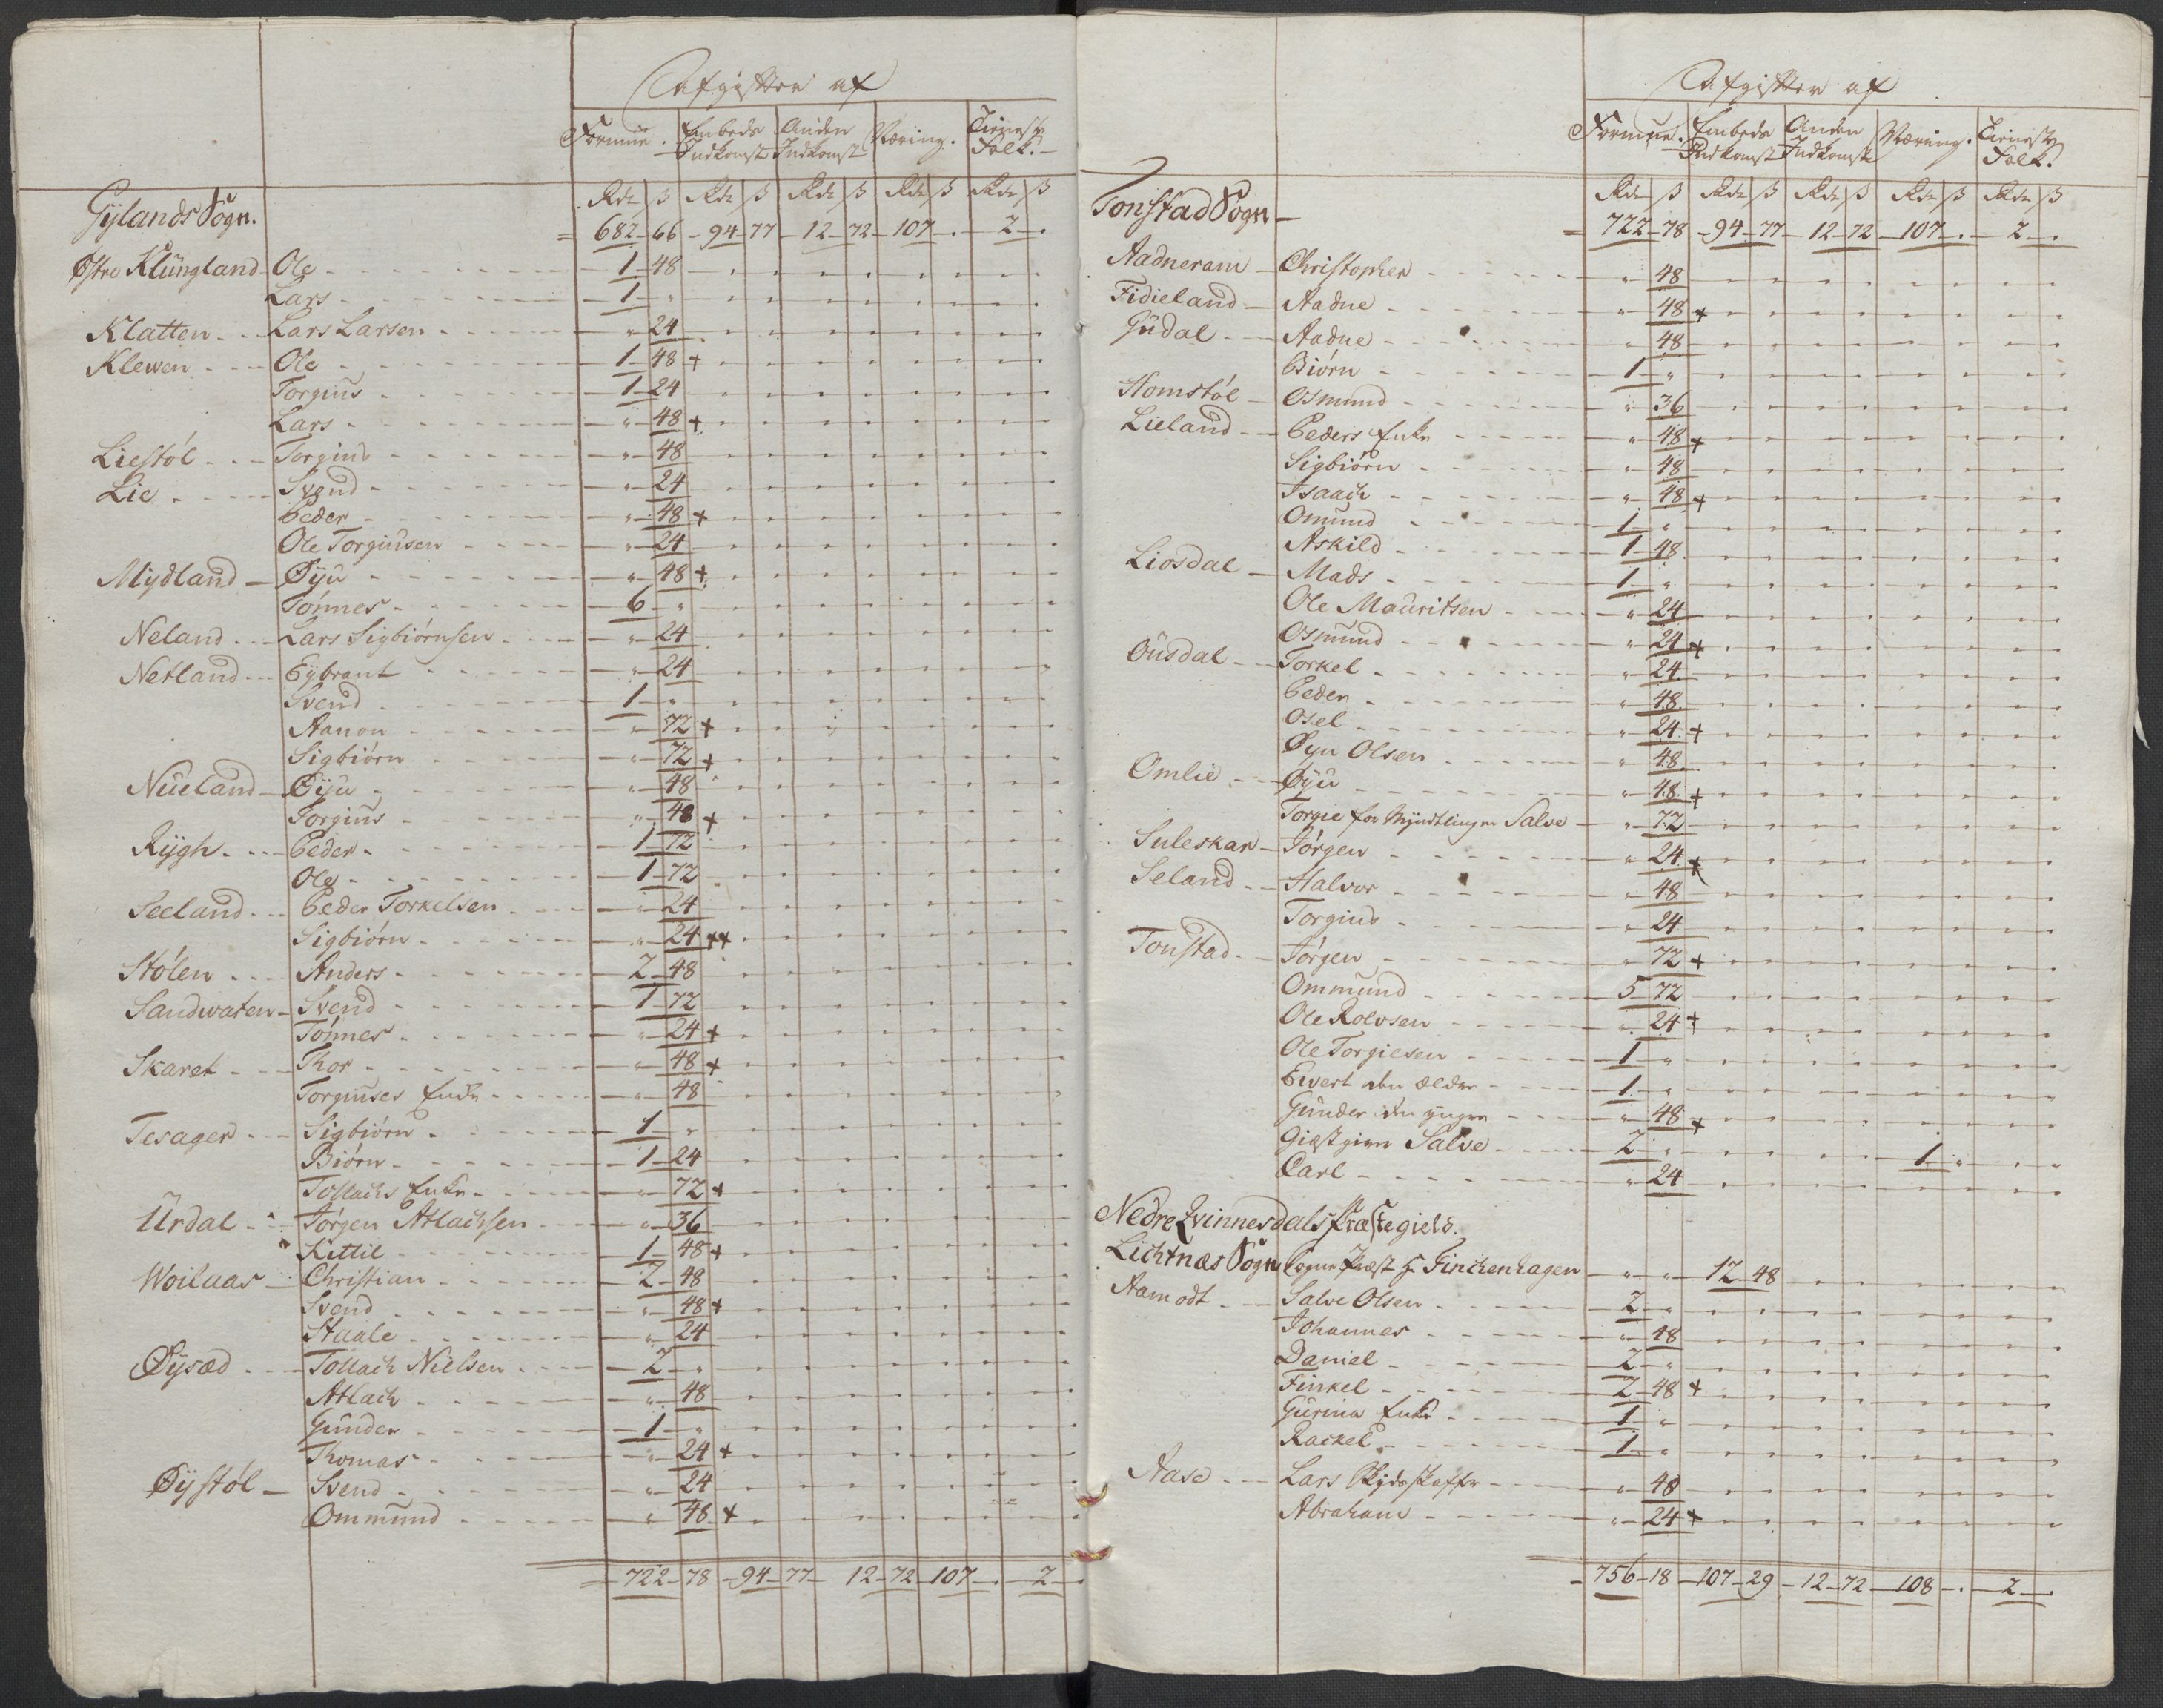 Afgifter af
Formue. Embeds Indkomst Anden Indkomst Næring. Tieneste Folk.
Rdr ß Rdr ß Rdr ß Rdr ß Rdr ß
Gylands Sogn.
682 66 94 77 12 72 107 . 2 .
Østre Klüngland Ole 1 48
Lars 1 "
Klatten Lars Larsen " 24
Klewen Ole 1 48 +
Torgius 1 24
Lars " 48 +
Liestøl Torgius " 48
Lie Svend " 24
Peder " 48 +
Ole Torgiusen " 24
Mydland Øyü " 48 +
Tønnes 6 "
Neland Lars Sigbiørnsen " 24
Netland Eybrant " 24
Svend 1 "
Aanon " 72 +
Sigbiørn " 72 +
Nüeland Øyü " 48
Torgiüs " 48 +
Rygh Peder 1 72
Ole 1 72
Seeland Peder Torkelsen " 24
Sigbiørn " 24 ++
Stølen Anders 2 48
Sandvaten Svend 1 72
Tønnes " 24 +
Skaret Thor " 48 +
Torgiuses Enke " 48
Tesager Sigbiørn 1 "
Biørn 1 24
Tollachs Enke " 72 +
Urdal Jørgen Atlachsen " 36
Kittil 1 48 +
Woilaas Christian 2 48
Svend " 48 +
Staale " 24
Øysæd Tollach Nielsen 2 "
Atlach " 48
Gunder 1 "
Thomas " 24 +
Øystøl Svend " 24
Ommund " 48 +
722 78 94 77 12 72 107 . 2 .
Afgifter af
Formue. Embeds Indkomst Anden Indkomst Næring. Tieneste Folk.
Rdr ß Rdr ß Rdr ß Rdr ß Rdr ß
Tonstad Sogn
722 78 94 77 12 72 107 . 2 .
Aadneram Christopher " 48
Fidieland Aadne " 48 +
Güdal Aadne " 48
Biørn 1 "
Homstøl Osmund " 36
Lieland Peders Enke " 48 +
Sigbiørn " 48
Isaach " 48 +
Omund 1 "
Askild 1 48
Liosdal Mads 1 "
Ole Mauritsen " 24
Osmund " 24 +
Oüsdal Torkel " 24
Peder " 48
Osel " 24 +
Øyu Olsen " 48
Omlie Øyü " 48 +
Torgie for Myndtlingen Salve " 72
Suleskar Jørgen " 24 +
Seland Halvor " 48
Torgius " 24
Tonstad Jørgen " 72 +
Ommund 5 72
Ole Rolvsen " 24 +
Ole Torgiesen 1 "
Ewert den ældre 1 "
Gunder den yngre " 48 +
Giæstgiver Salve 2 " 1 "
Carl " 24
Nedre Qvinnesdals Præstegield.
Lichtnæs Sogn Sogne Præst H Finchenhagen " " 12 48
Aamodt Salve Olsen 2 "
Johannes " 48
Daniel 2 "
Finkel 2 48 +
Gurina Enke 1 "
Rackel 1 "
Aase Lars Skydsskaffer " 48
Abraham " 24 +
756 18 107 29 12 72 108 . 2 .